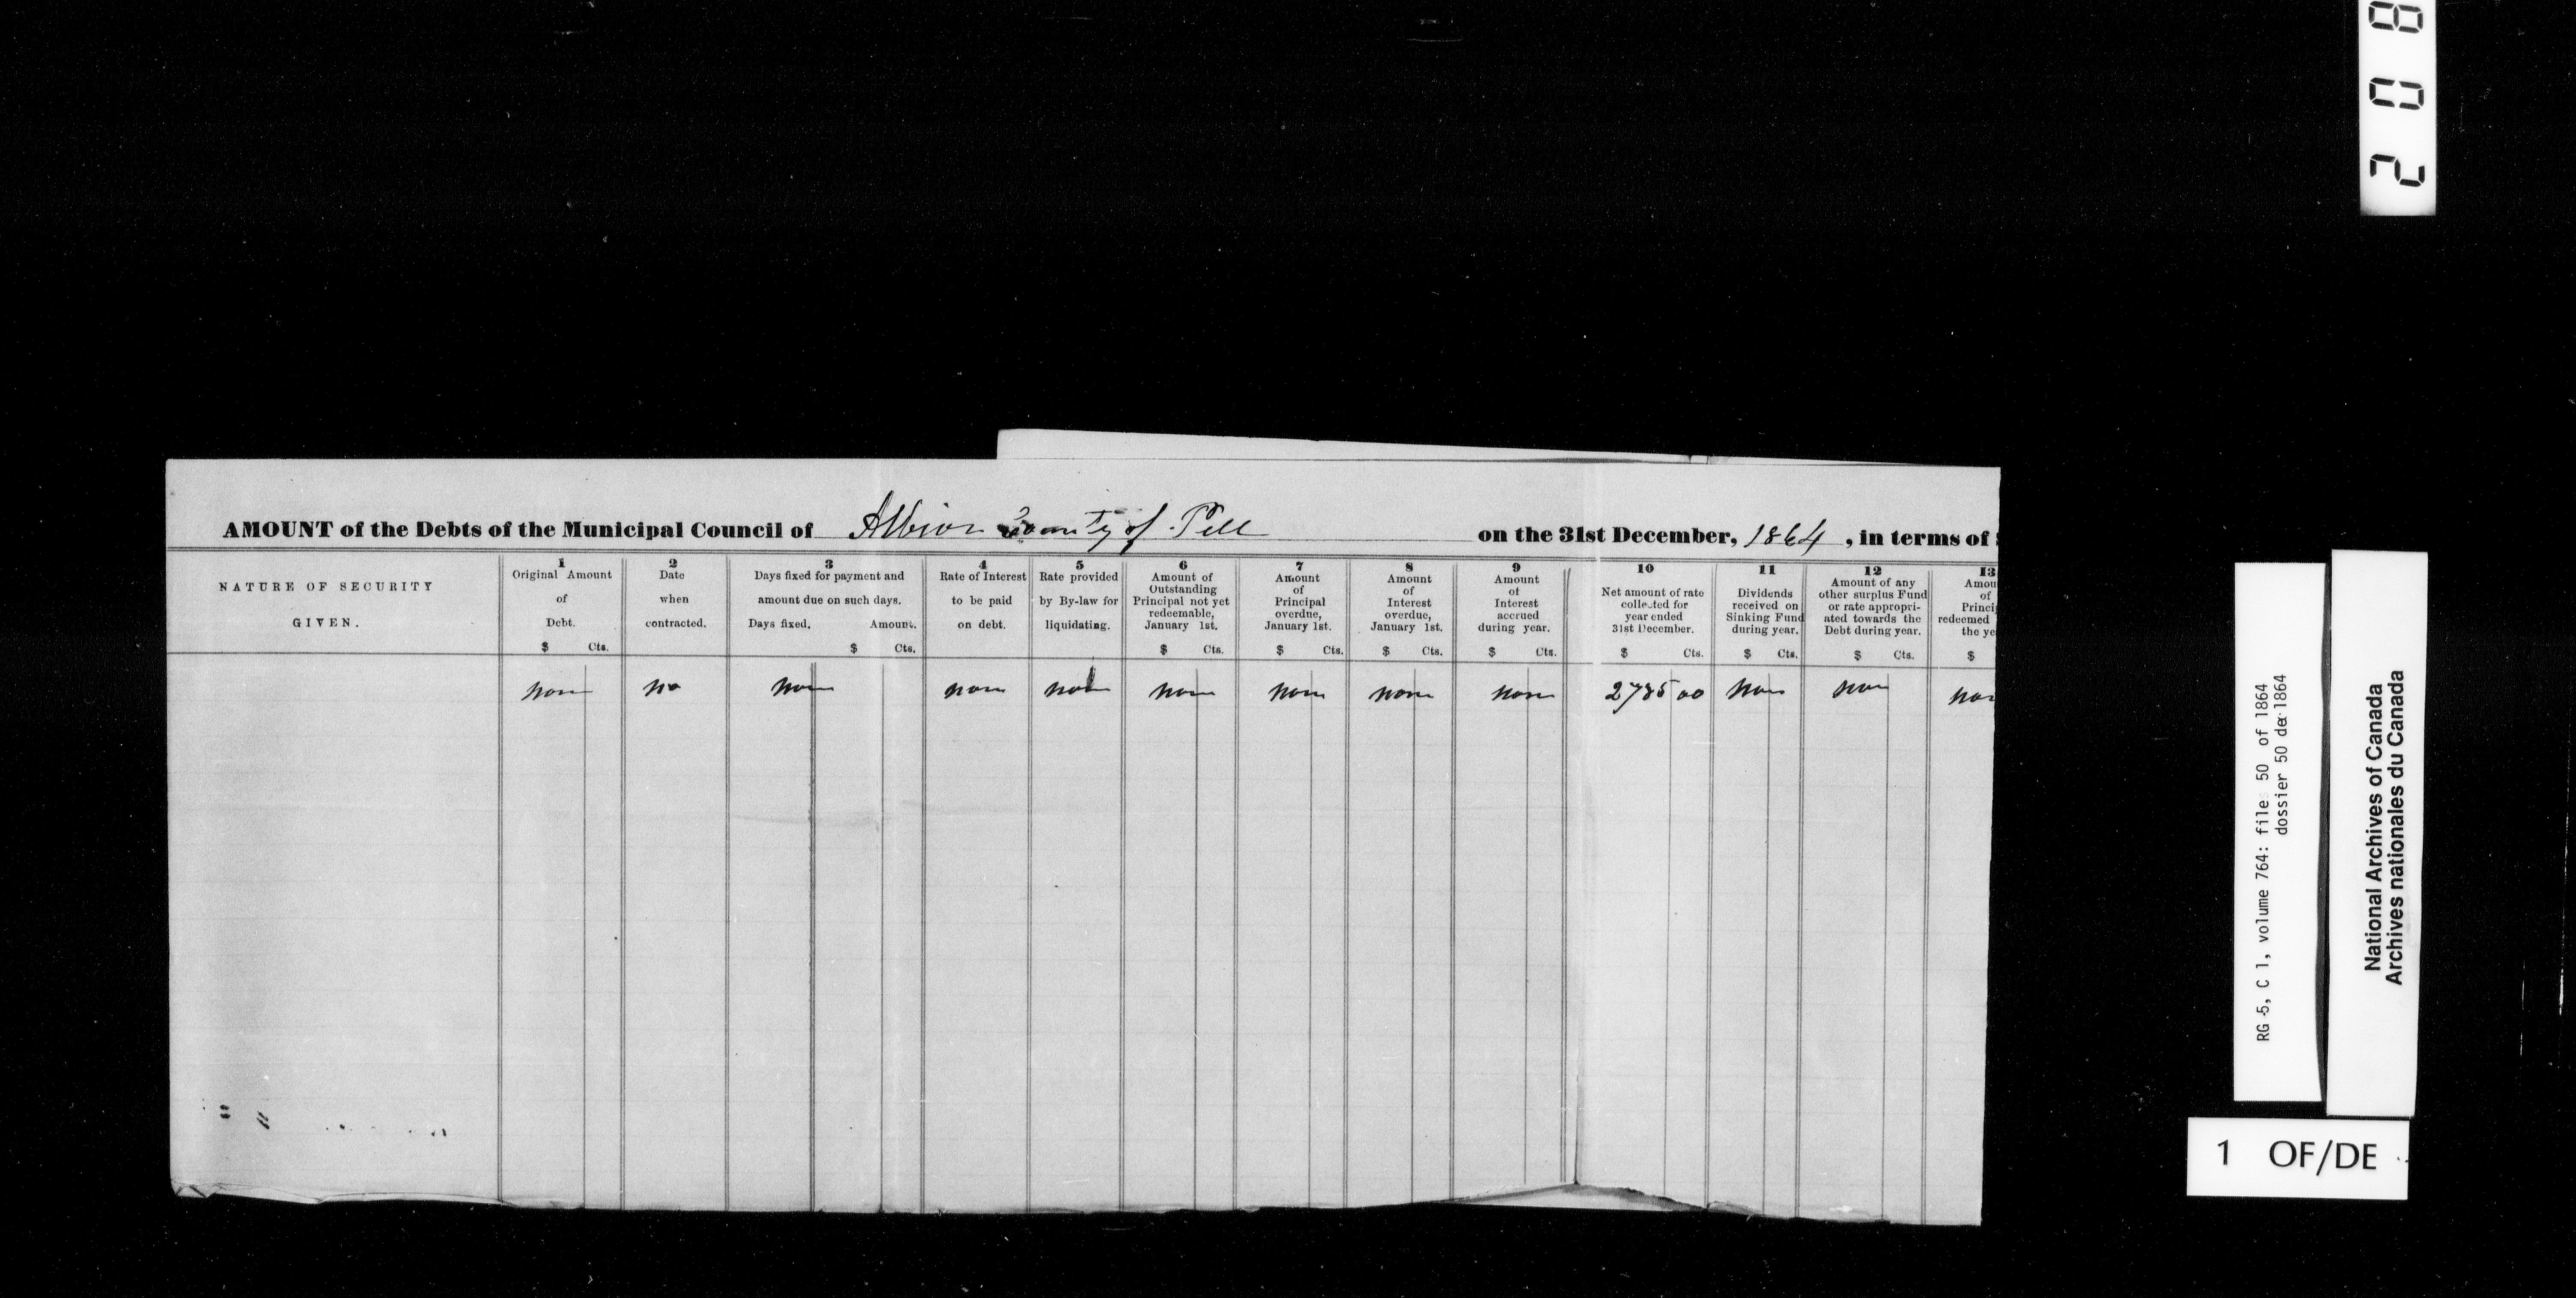 208
AMOUNT of the Debts of the Municipal Council of Albion County of Pell on the 31st December, 1864, in terms of
NATURE OF SECURITY GIVEN.
1 Original Amount of Debt. $ Cts.
2 Date when contracted.
3 Days fixed for payment and amount due on such days. Days fixed. Amount. $ Cts.
4 Rate of Interest to be paid on debt.
5 Rate provided by By-law for liquidating.
6 Amount of Outstanding Principal not yet redeemable, January 1st. $ Cts.
7 Amount of Principal overdue, January 1st. $ Cts.
8 Amount of Interest overdue, January 1st. $ Cts.
9 Amount of Interest accrued during year. $ Cts.
10 Net amount of rate collected for year ended 31st December. $ Cts.
11 Dividends received on Sinking Fund during year. $ Cts.
12 Amount of any other surplus Fund or rate appropriated towards the Debt during year. $ Cts.
13 Amou of Princi redeemed the ye $
non no non non non non non non non 2785 00 non non non
RG 5, C 1, volume 764: files 50 of 1864
dossier 50 de 1864
National Archives of Canada
Archives nationales du Canada
1 OF/DE